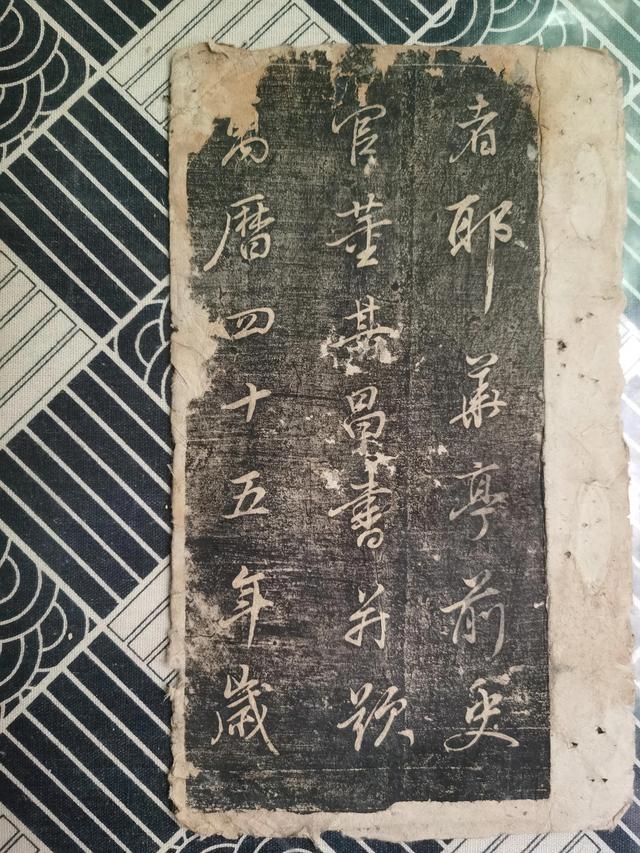 者耶華亭前史
官董其昌書并題
萬曆四十五年歲